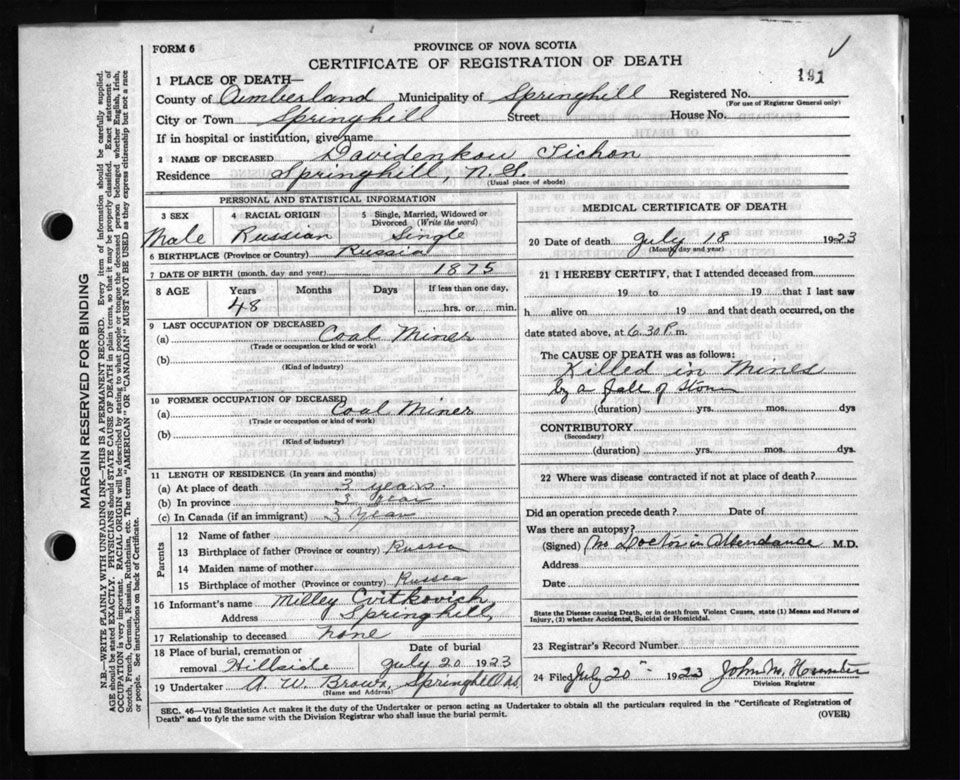 FORM 6
PROVINCE OF NOVA SCOTIA
CERTIFICATE OF REGISTRATION OF DEATH
191
1 PLACE OF DEATH—
County of Cumberland Municipality of Springhill Registered No.
(For use of Registrar General only)
City or Town Springhill Street House No.
If in hospital or institution, give name
2 NAME OF DECEASED Davidenkow Tichon
Residence Springhill, N.S.
(Usual place of abode)
PERSONAL AND STATISTICAL INFORMATION
3 SEX 4 RACIAL ORIGIN 5 Single, Married, Widowed or Divorced (Write the word)
Male Russian Single
6 BIRTHPLACE (Province or Country) Russia
7 DATE OF BIRTH (month, day and year) 1875
8 AGE Years Months Days If less than one day,
48 hrs. or min.
9 LAST OCCUPATION OF DECEASED
(a) Coal Miner
(Trade or occupation or kind or work)
(b)
(Kind of industry)
10 FORMER OCCUPATION OF DECEASED
(a) Coal Miner
(Trade or occupation or kind or work)
(b)
(Kind of industry)
11 LENGTH OF RESIDENCE (In years and months)
(a) At place of death 3 years.
(b) In province 3 year
(c) In Canada (if an immigrant) 3 Year
Parents
12 Name of father
13 Birthplace of father (Province or country) Russia
14 Maiden name of mother
15 Birthplace of mother (Province or country) Russia
16 Informant's name Milley Cvitkovich,
Address Springhill,
17 Relationship to deceased none
18 Place of burial, cremation or Date of burial
removal Hillside July 20 1923
19 Undertaker A. W. Brown, Springhill N.S.
(Name and Address)
MEDICAL CERTIFICATE OF DEATH
20 Date of death July 18 1923
(Month day and year)
21 I HEREBY CERTIFY, that I attended deceased from
19 to 19 that I last saw
h alive on 19 and that death occurred, on the
date stated above, at 6.30 P.m.
The CAUSE OF DEATH was as follows:
Killed in Mines
by a fall of Stone
(duration) yrs. mos. dys
CONTRIBUTORY
(Secondary)
(duration) yrs. mos. dys
22 Where was disease contracted if not at place of death?
Did an operation precede death? Date of
Was there an autopsy?
(Signed) No Doctor in Attendance M.D.
Address
Date
State the Disease causing Death, or in death from Violent Causes, state (1) Means and Nature of
Injury, (2) whether Accidental, Suicidal or Homicidal.
23 Registrar's Record Number
24 Filed July 20" 1923 John M.
Division Registrar
SEC. 46—Vital Statistics Act makes it the duty of the Undertaker or person acting as Undertaker to obtain all the particulars required in the "Certificate of Registration of
Death" and to fyle the same with the Division Registrar who shall issue the burial permit.
(OVER)
MARGIN RESERVED FOR BINDING
N.B.—WRITE PLAINLY WITH UNFADING INK—THIS IS A PERMANENT RECORD. Every item of information should be carefully supplied.
AGE should be stated EXACTLY. PHYSICIANS should STATE CAUSE OF DEATH in plain terms, so that it may be properly classified. Exact statement of
OCCUPATION is very important. RACIAL ORIGIN will be described by stating to what people or tongue the deceased person belonged whether English, Irish,
Scotch, French, German, Russian, Ruthenian, etc. The terms "AMERICAN" or "CANADIAN" MUST NOT BE USED as they express citizenship but not a race
or people. See instructions on back of Certificate.